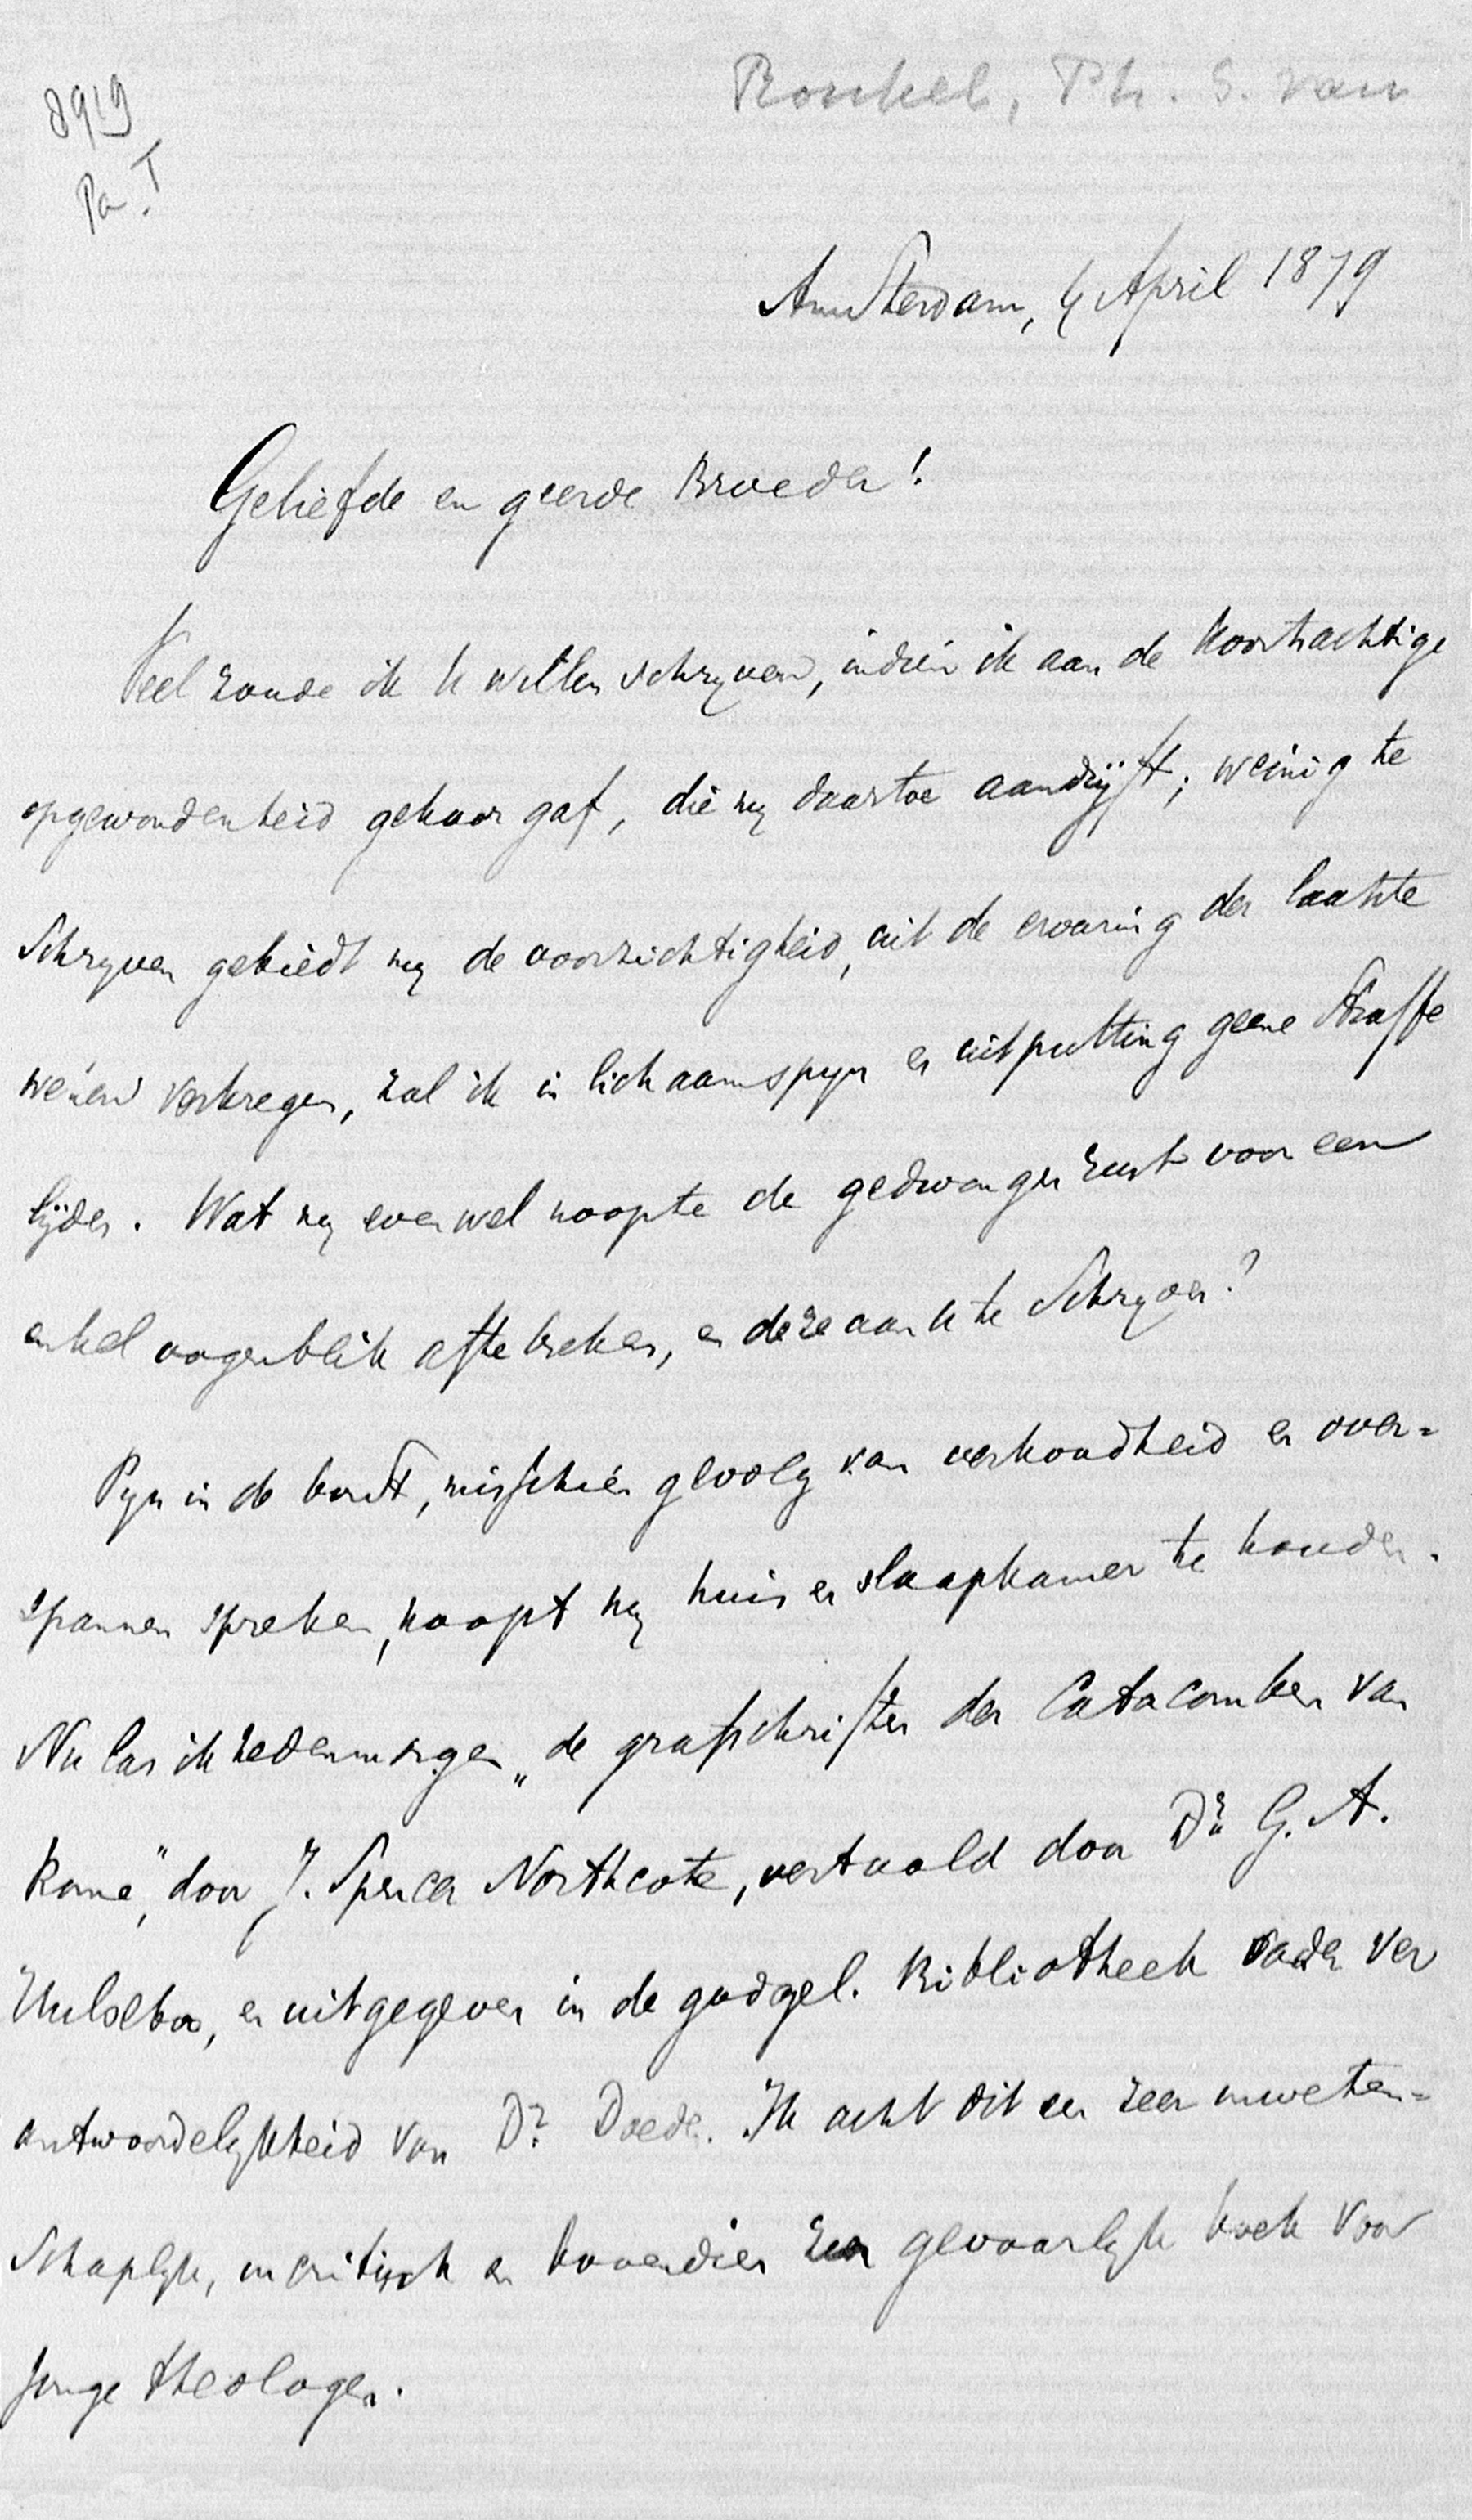 Ronkel, Ph. S. van
8919
Pa. I
Amsterdam, 4 April 1879
Geliefde en geerde Broeder!
Veel zoude ik U willen schryven, indien ik aan de koortsachtige
opgewondenheid gehoor gaf, die my daartoe aandrijft; weinig te
schryven gebiedt my de voorzichtigheid, uit de ervaring der laatste
weken verkregen, zal ik in lichaamspyn en uitputting geene straffe
lijden. Wat my evenwel noopte de gedwongen rust voor een
enkel oogenblik afte breken, en deze aan U te schryven?
Pyn in de borst, misschien gevolg van verkoudheid en over=
spannen spreken, noopt my huis en slaapkamer te houden.
Nu las ik hedenmorgen „de grafschriften der Catacomben van
Rome," door J. Spencer Northcote, vertaald door Dr. G. A.
Hulsebos, en uitgegeven in de godgel. Bibliotheek onder ver
antwoordelykheid van Dr. Doedes. Ik acht dit een zeer onweten=
schaplyk, oncritisch en bovendien zeer gevaarlyk boek voor
jonge theologen.